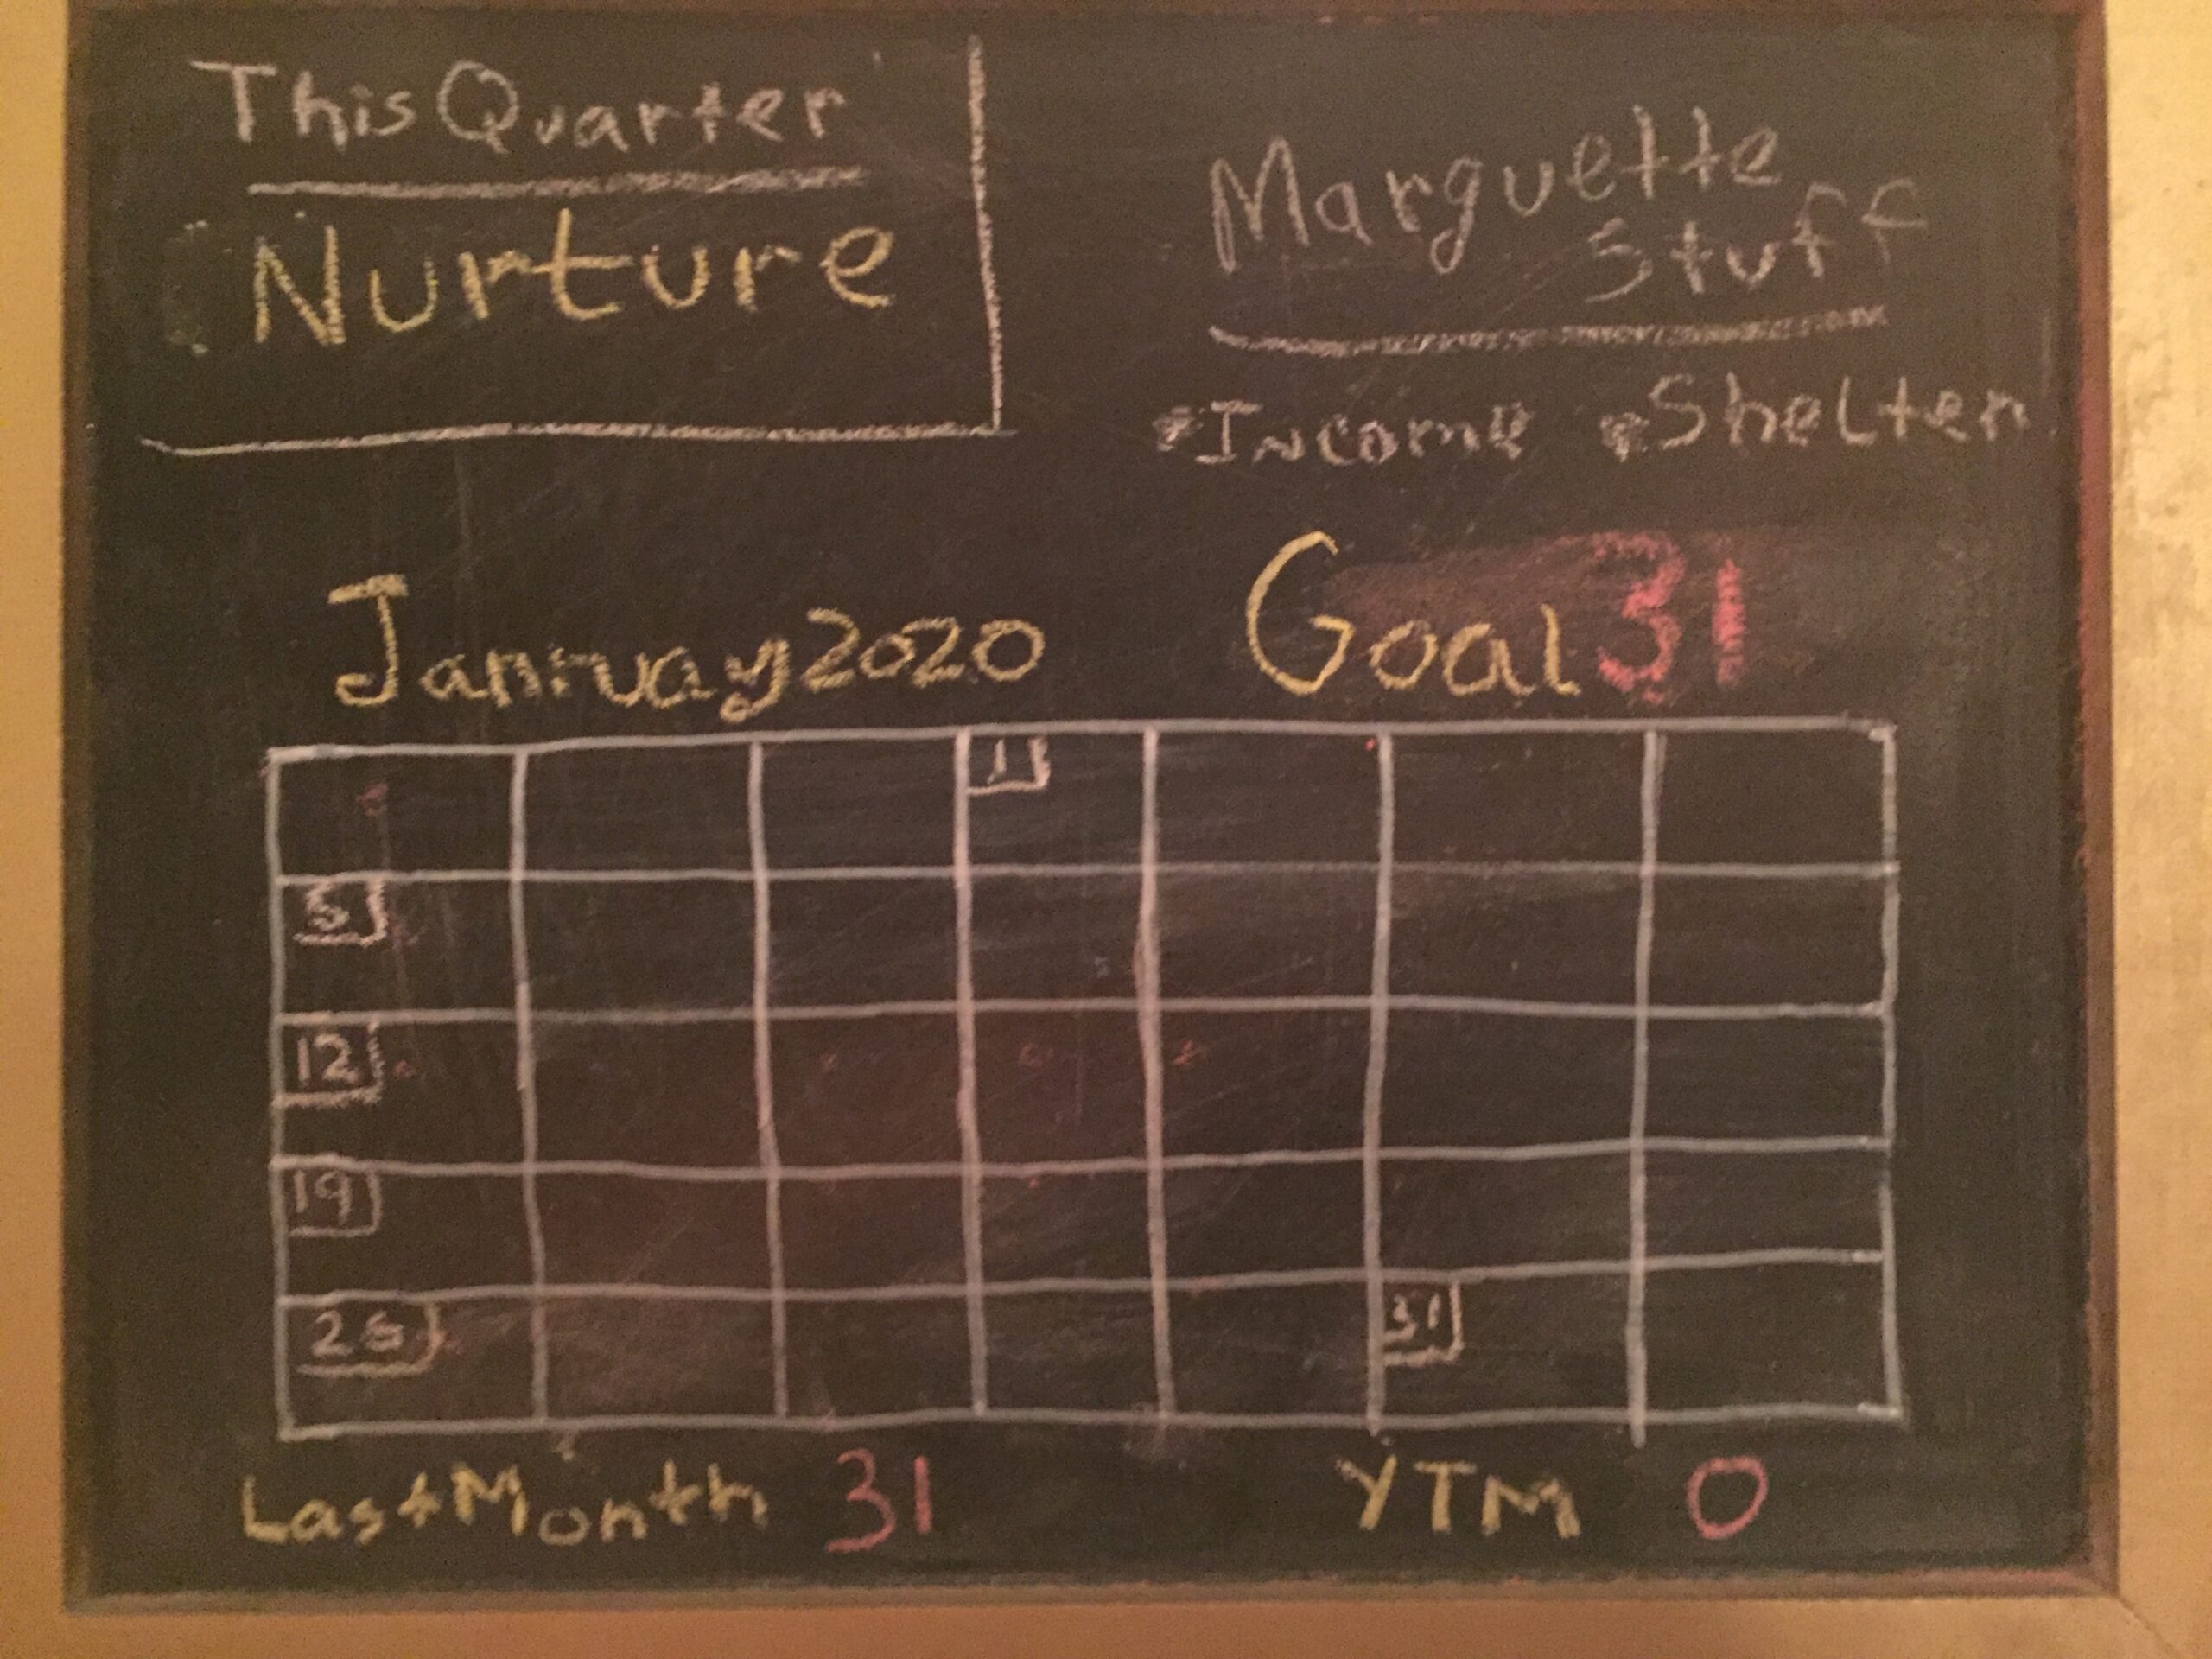 This Quarter
Nurture
Marguette
Stuff
•Income •Shelter
January 2020
Goal 31
1
5
12
19
26
31
Last Month 31
YTM 0